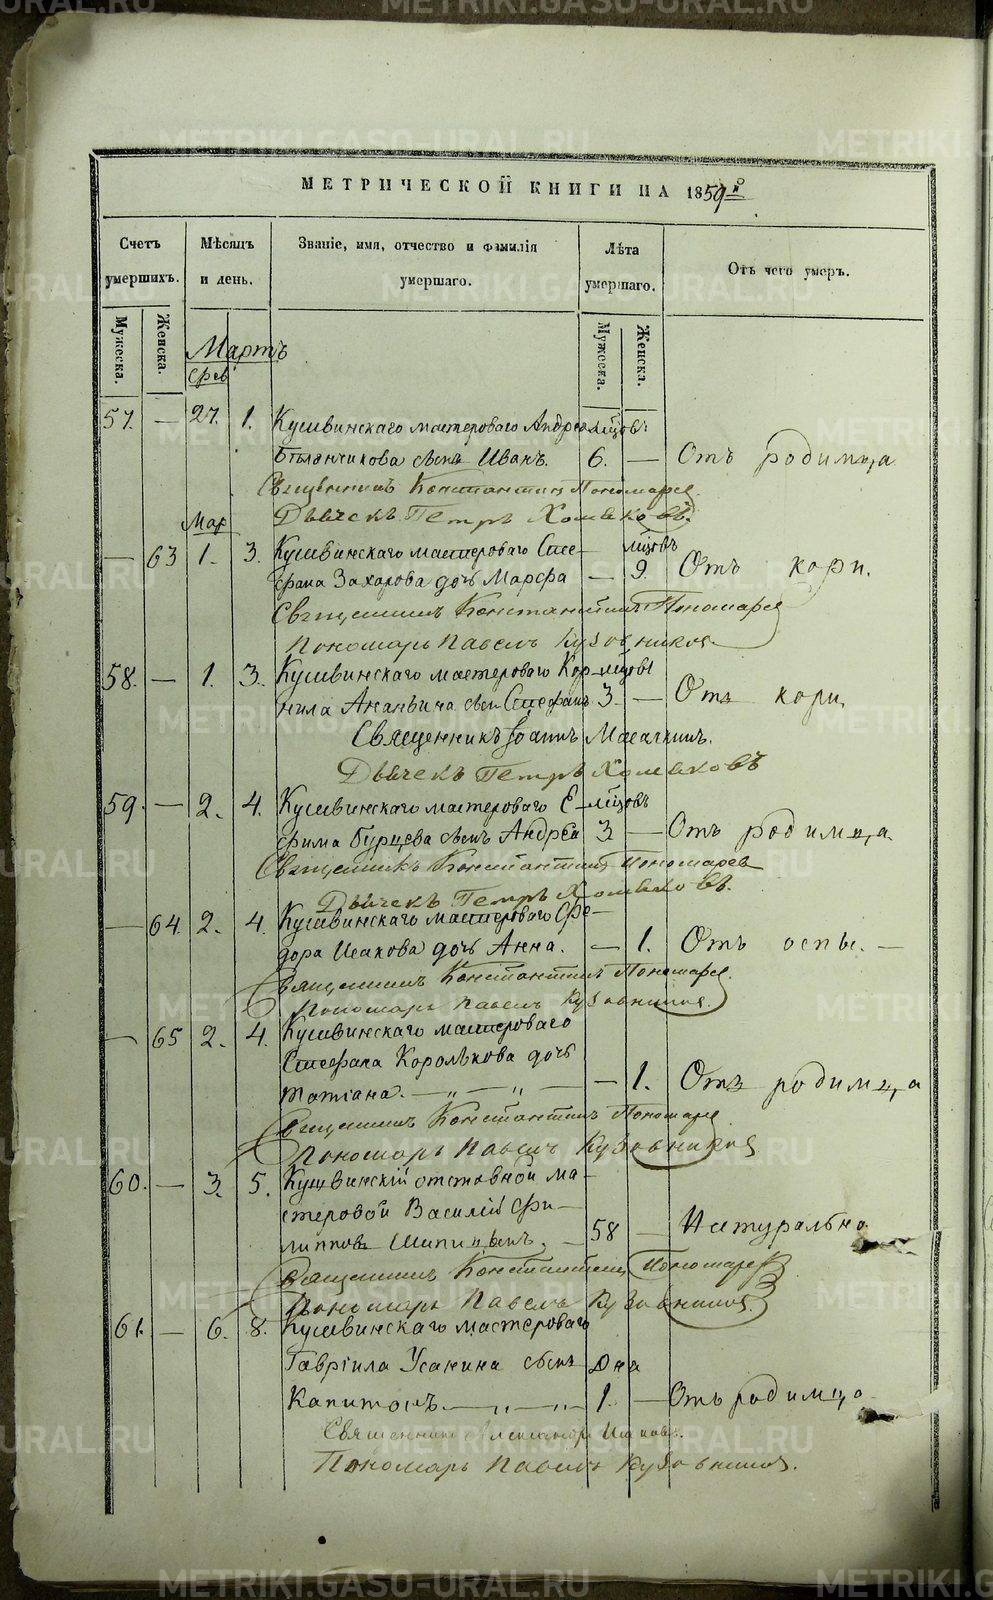 МЕТРИЧЕСКОЙ КНИГИ НА 1859й
Счетъ умершихъ. Мѣсяцъ и день. Званіе, имя, отчество и фамилія умершаго. Лѣта умершаго. Отъ чего умеръ.
Мужеска. Женска. Мужеска. Женска.
Мартъ
Фев
57. — 27. 1. Кушвинскаго мастероваго Андрея мѣцовъ
сынъ Иванъ. 6. — Отъ родимца
Священникъ Константинъ Пономаревъ
Дьячекъ Петръ Хомяковъ.
Мар
— 63 1. 3. Кушвинскаго мастероваго Сте— мѣцовъ
фана Захарова дочь Марфа — 9. Отъ кори.
Священникъ Константинъ Пономаревъ
Пономарь Павелъ Кузовниковъ
58. — 1. 3. Кушвинскаго мастероваго Кор— мѣцовъ
нила Ананьина сынъ Стефанъ 3 — Отъ кори.
Священникъ Іоаннъ
Дьячекъ Петръ Хомяковъ
59. — 2. 4. Кушвинскаго мастероваго Е— мѣцовъ
фима Бурцева сынъ Андрей 3 — Отъ родимца.
Священникъ Константинъ Пономаревъ
Дьячекъ Петръ Хомяковъ.
— 64. 2. 4. Кушвинскаго мастероваго Фе—
дора Исакова дочь Анна. — 1. Отъ оспы. —
Священникъ Константинъ Пономаревъ
Пономарь Павелъ Кузовниковъ
— 65 2. 4. Кушвинскаго мастероваго
Стефана Королькова дочь
Татіана. — „ — „ — — 1. Отъ родимца
Священникъ Константинъ Пономаревъ
Пономарь Павелъ Кузовниковъ
60. — 3. 5. Кушвинскій отставной ма—
стеровой Василій Фи—
липповъ — 58 — Натурально
Священникъ Константинъ Пономаревъ
Пономарь Павелъ Кузовниковъ
61. — 6. 8. Кушвинскаго мастероваго
Гавріила Усанина сынъ Дня
Капитонъ. — „ — „ — 1. — Отъ родимца
Священникъ Александръ
Пономарь Павелъ Кузовниковъ.
METRIKI.GASO-URAL.RU